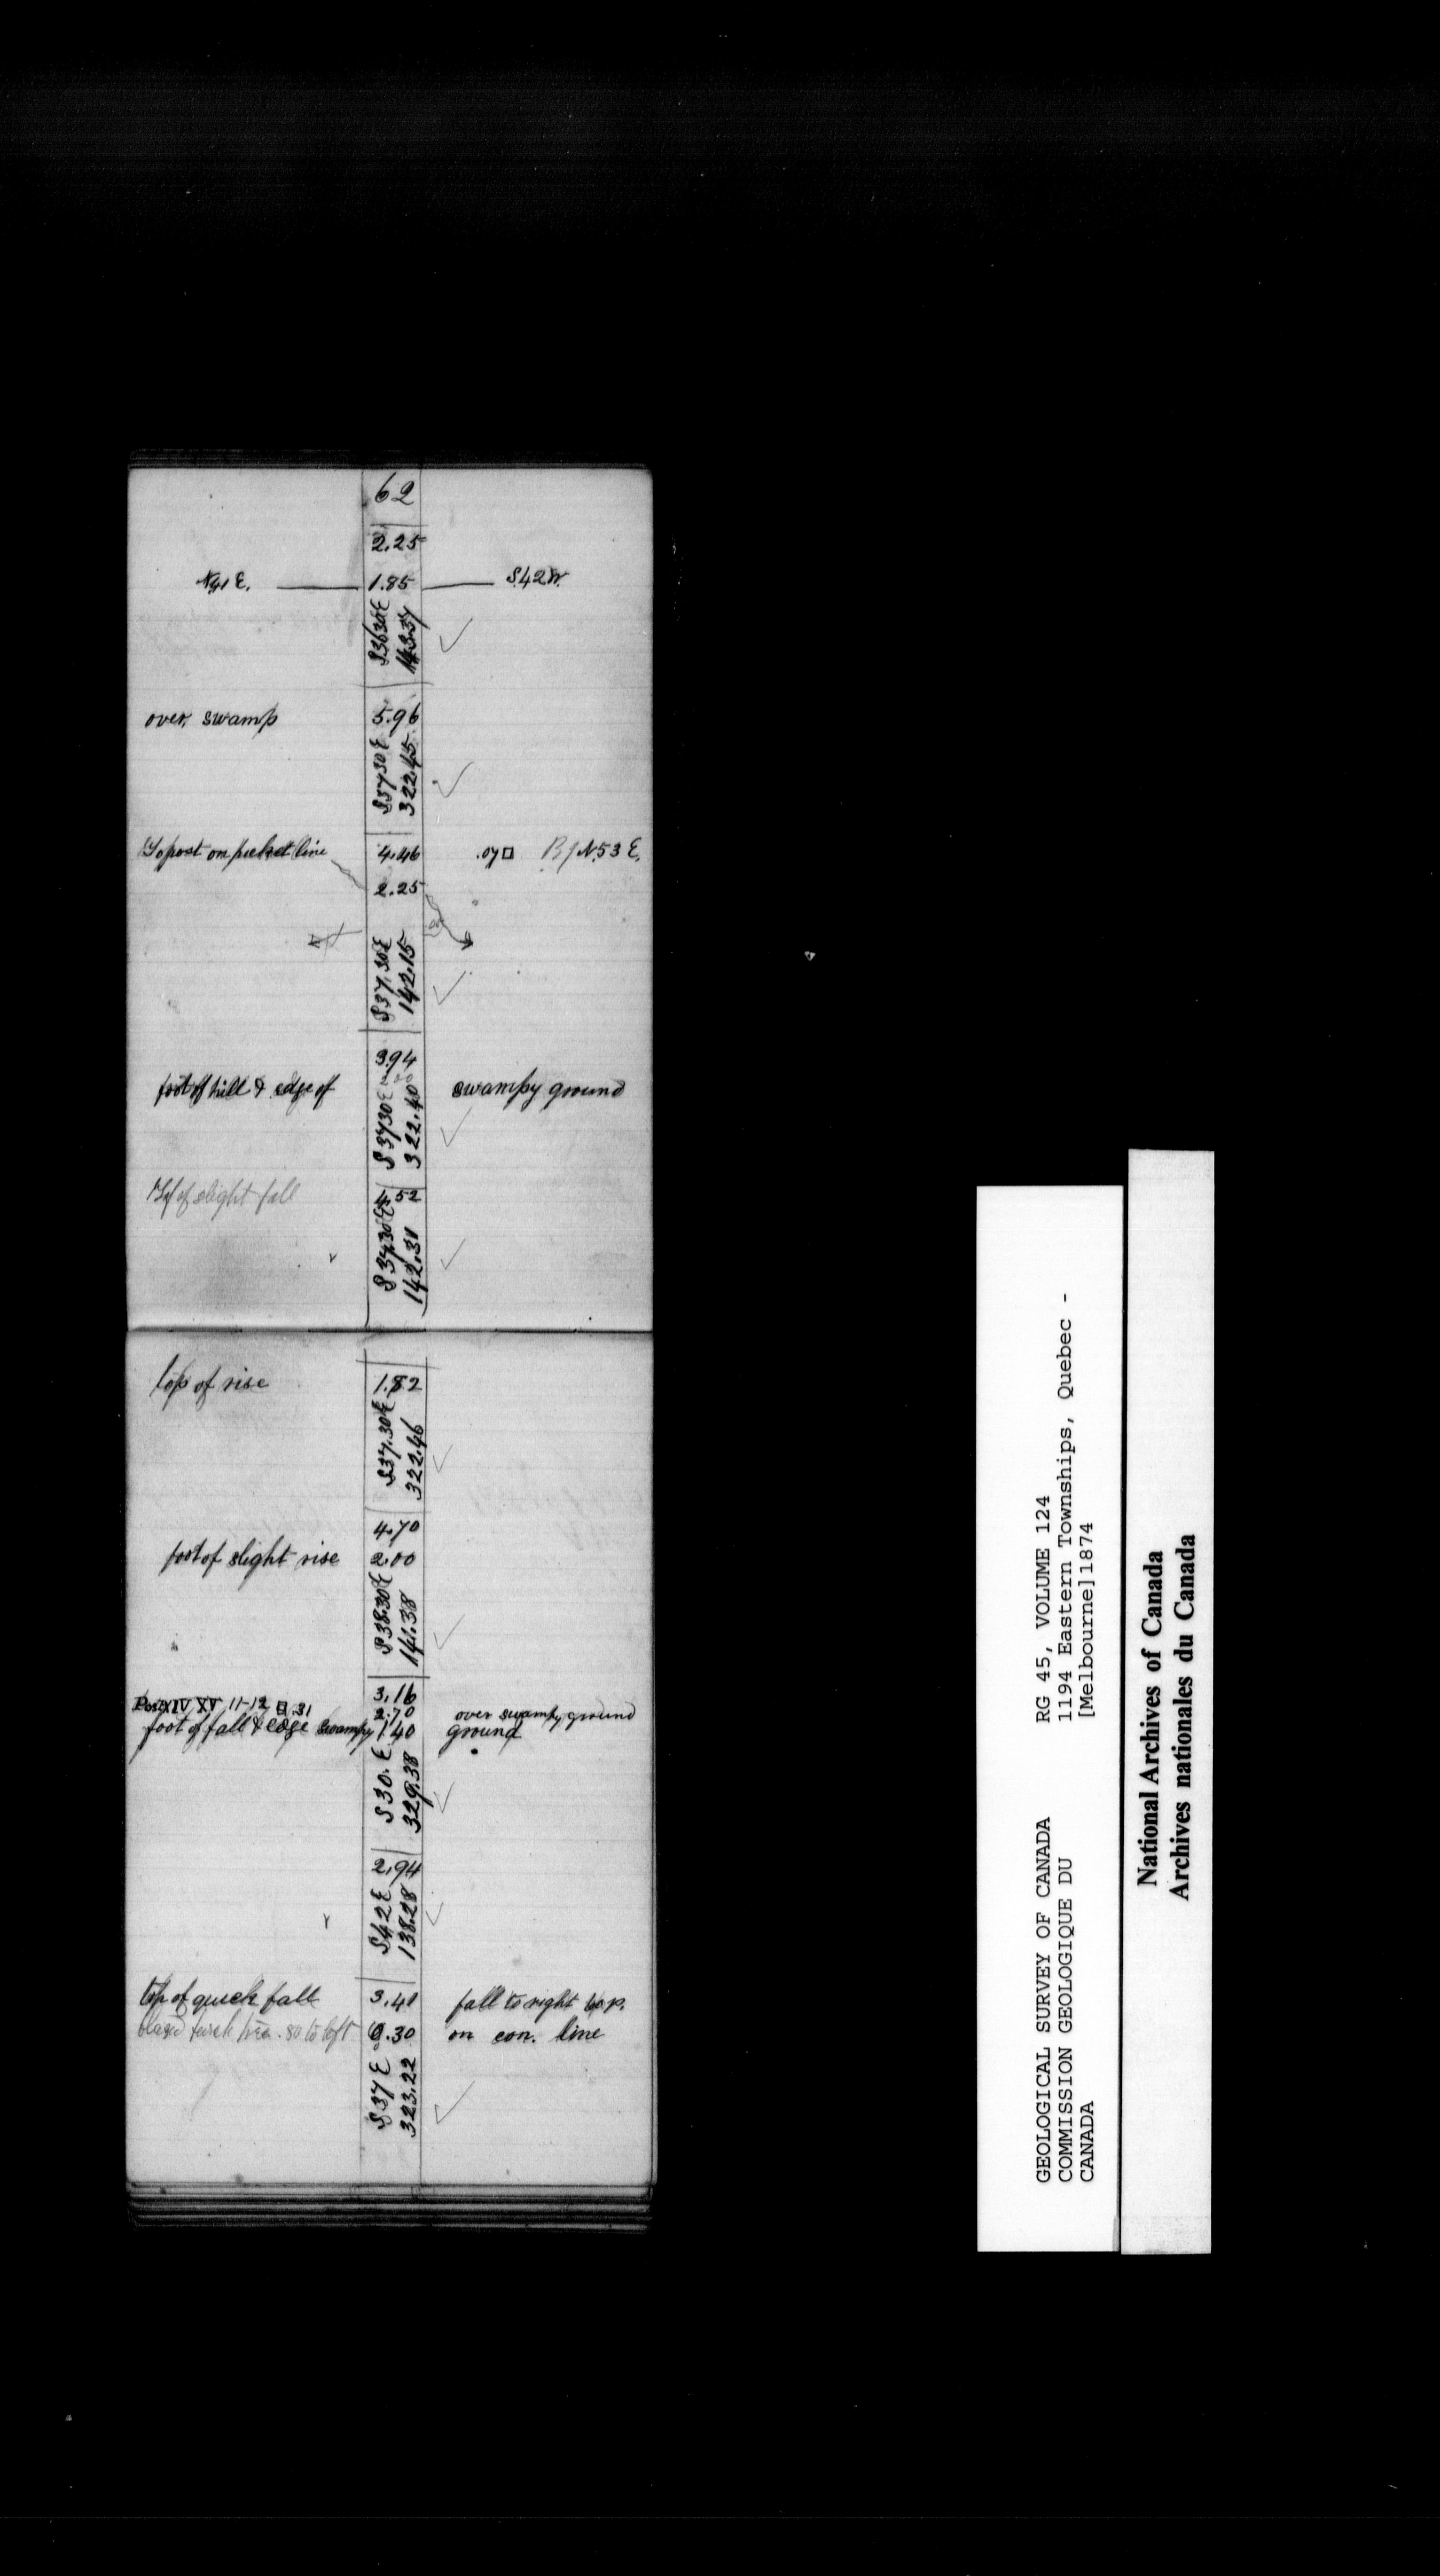 62
2.25
N41E. 1.85 S.42W.
S3630E
143.37
over, swamp 5.96
S3730E
322.45
To post on picket line 4.46 .07□ N.53E.
2.25
S37.30E
142.15
3.94
foot of hill & edge of swampy ground
S3730E
322.40
of slight fall 4.52
S37.30E
142.31
top of rise 1.82
S37.30E
322.46
4.70
foot of slight rise 2.00
S38.30E
141.38
3.16
Post XIV XV 11-12 □.31 2.70 over swampy ground
foot of fall & edge swampy 1.40 ground
S30.E
329.38
2.94
S42E
138.28
top of quick fall 3.41 fall to right
.80 to left 0.30 on con. line
S37E
323.22
GEOLOGICAL SURVEY OF CANADA
COMMISSION GEOLOGIQUE DU
CANADA
RG 45, VOLUME 124
1194 Eastern Townships, Quebec -
[Melbourne]1874
National Archives of Canada
Archives nationales du Canada